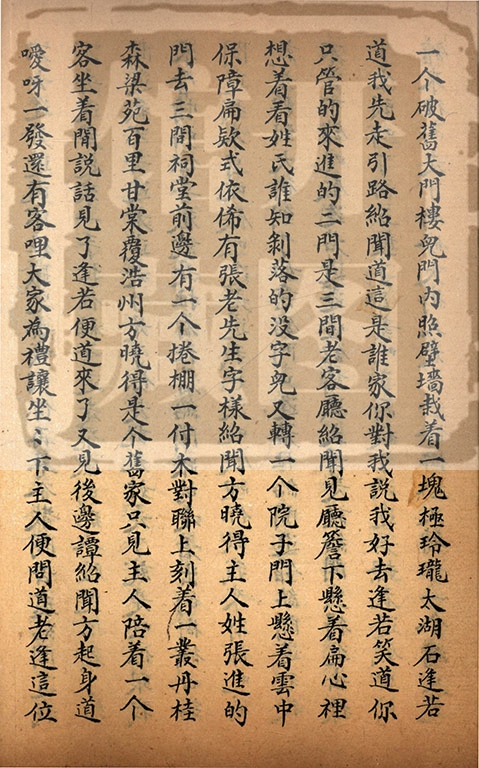 一个破舊大門樓兒門內照壁墻栽着一塊極玲瓏太湖石逢若
道我先走引路紹聞道這是誰家你對我説我好去逢若笑道你
只管的來進的二門是三間老客廳紹聞見廳簷下懸着扁心裡
想着看姓氏誰知剥落的没字兒又轉一个院子門上懸着雲中
保障扁欵式依俙有張老先生字様紹聞方曉得主人姓張進的
門去三間祠堂前邊有一个捲棚一付木對聯上刻着一叢丹桂
森梁苑百里甘棠覆浩州方曉得是个舊家只見主人陪着一个
客坐着閒説話見了逢若便道來了又見後邊譚紹聞方起身道
噯呀一發還有客哩大家為禮讓坐〻下主人便問道老逢這位